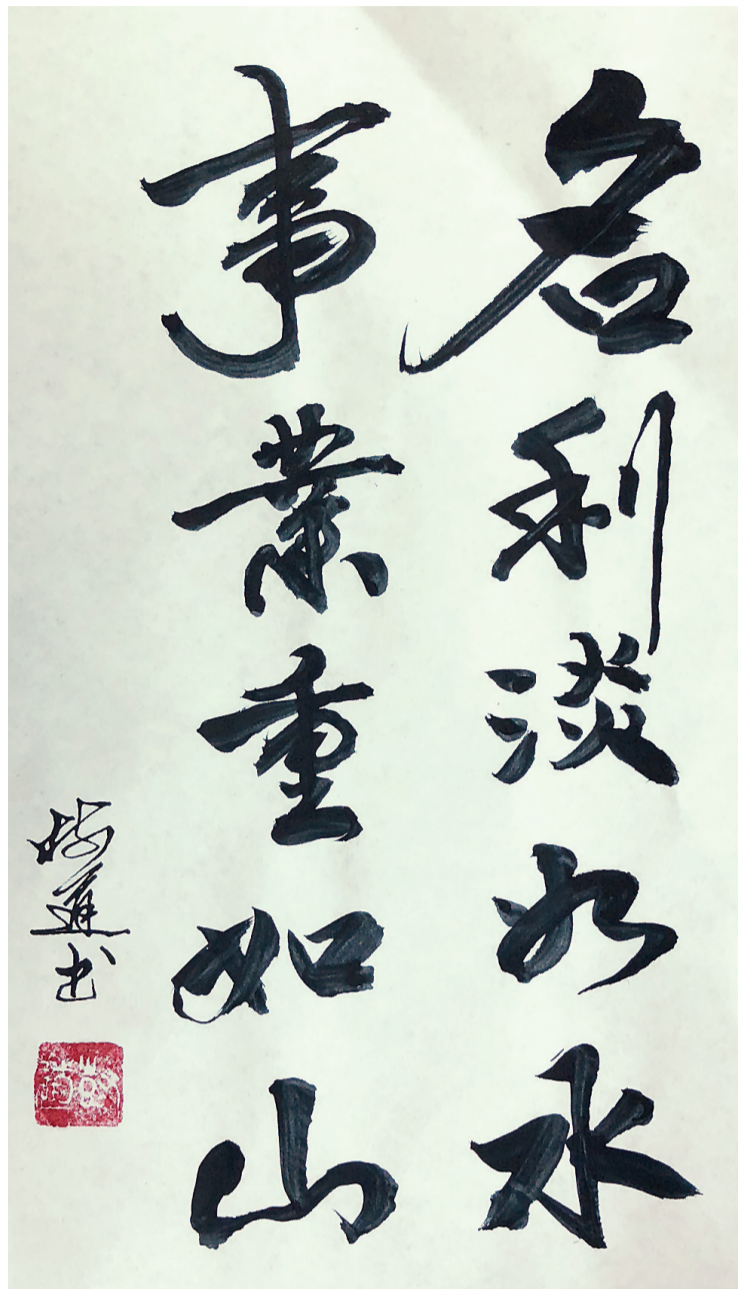 名利淡如水
事業重如山